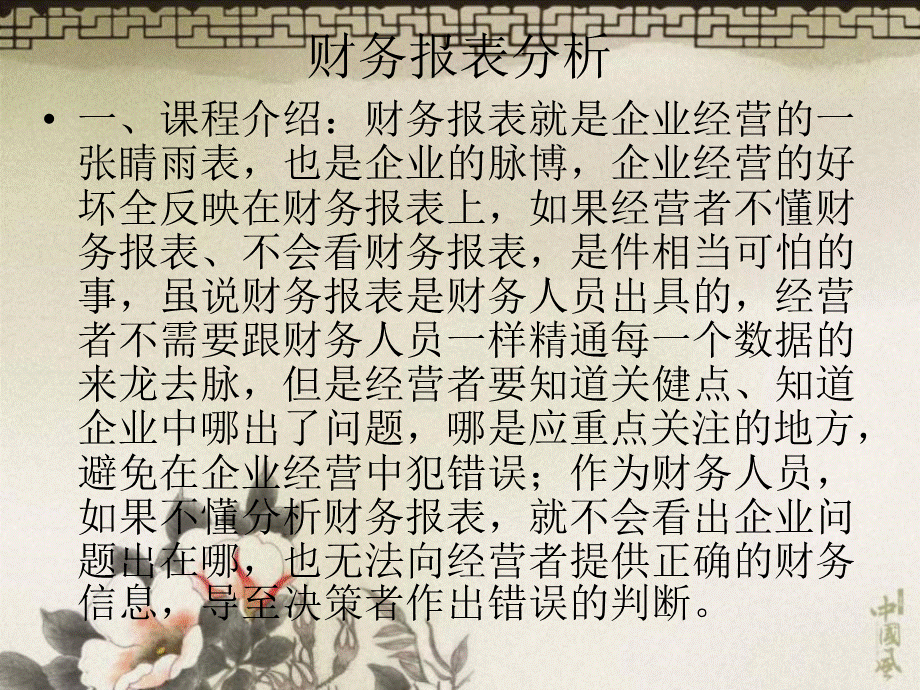 财务报表分析
• 一、课程介绍：财务报表就是企业经营的一
张晴雨表，也是企业的脉博，企业经营的好
坏全反映在财务报表上，如果经营者不懂财
务报表、不会看财务报表，是件相当可怕的
事，虽说财务报表是财务人员出具的，经营
者不需要跟财务人员一样精通每一个数据的
来龙去脉，但是经营者要知道关健点、知道
企业中哪出了问题，哪是应重点关注的地方，
避免在企业经营中犯错误；作为财务人员，
如果不懂分析财务报表，就不会看出企业问
题出在哪，也无法向经营者提供正确的财务
信息，导至决策者作出错误的判断。
中國风